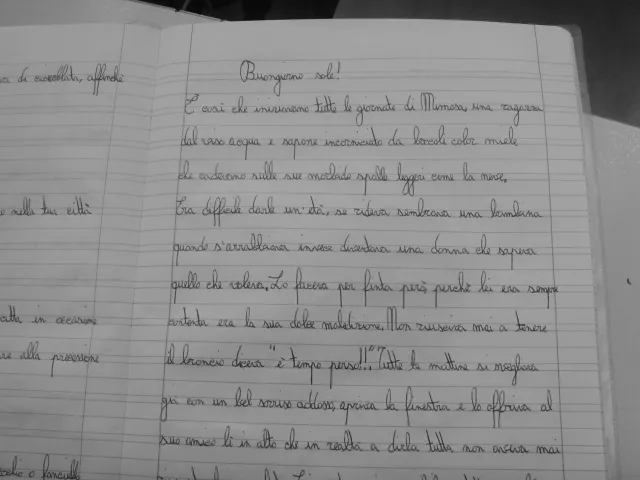 va di cioccolata, affinchè
o nella tua città
atta in occasione
re alla processione
cchio o fanciullo
Buongiorno sole!
È così che iniziavano tutte le giornate di Mimosa, una ragazza
dal viso acqua e sapone incorniciato da boccoli color miele
che cadevano sulle sue morbide spalle leggeri come la neve.
Era difficile darle un'età, se rideva sembrava una bambina
quando s'arrabbiava invece diventava una donna che sapeva
quello che voleva. Lo faceva per finta però, perchè lei era sempre
contenta era la sua dolce maledizione. Non riusciva mai a tenere
il broncio diceva "è tempo perso!!". Tutte le mattine si svegliava
già con un bel sorriso addosso, apriva la finestra e lo offriva al
suo amico lì in alto che in realtà a dirla tutta non usciva mai